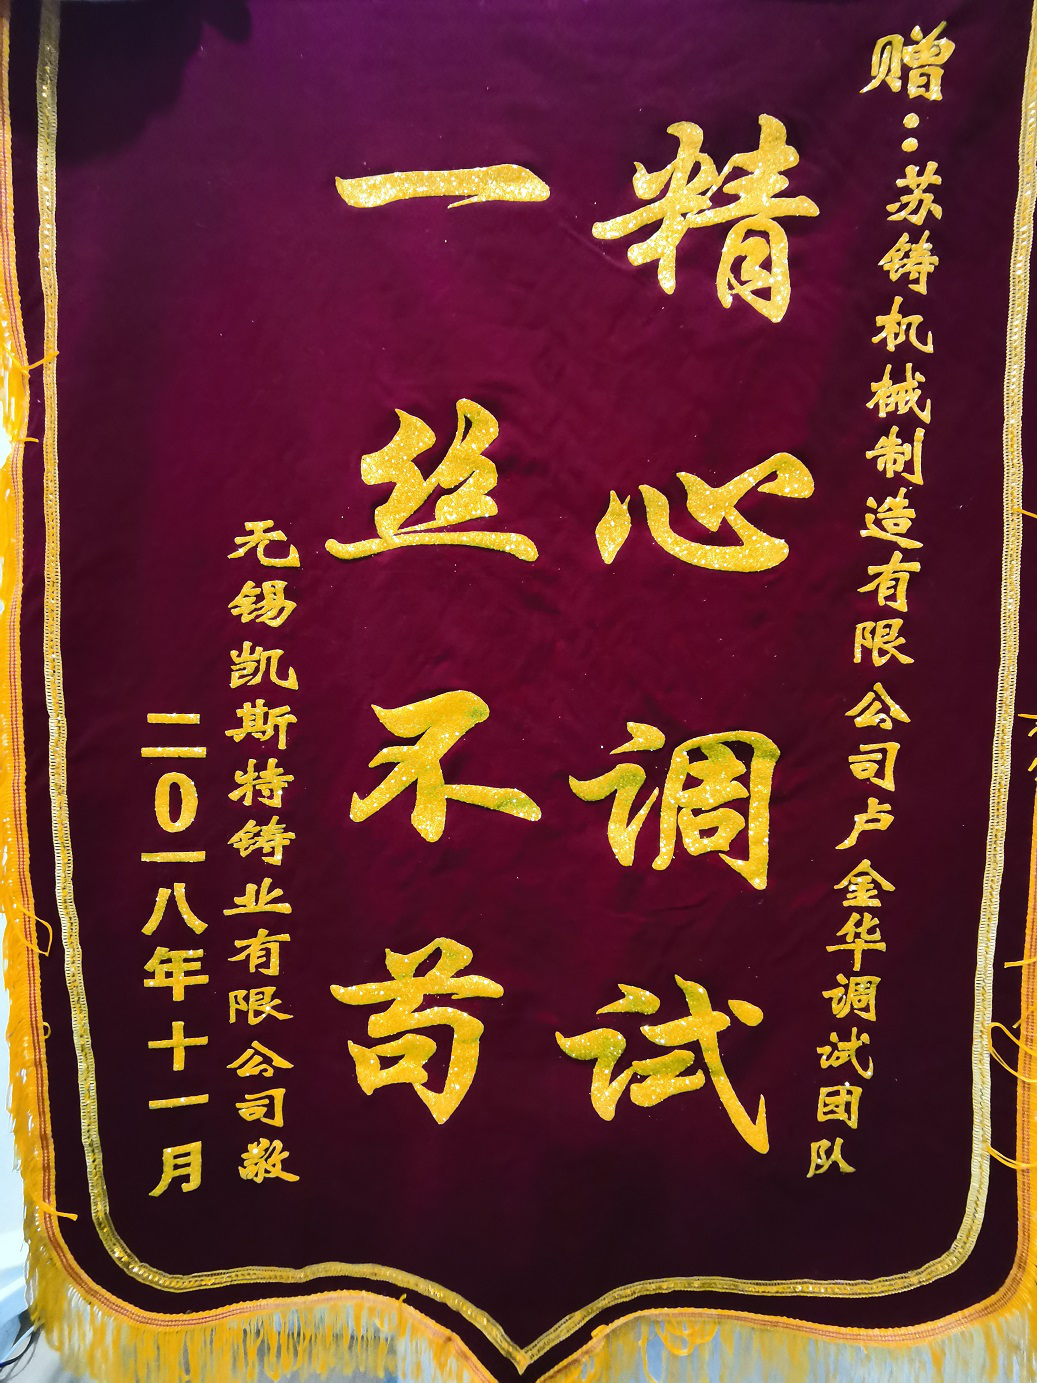 赠：苏铸机械制造有限公司卢金华调试团队
精心调试
一丝不苟
无锡凯斯特铸业有限公司敬
二0一八年十一月